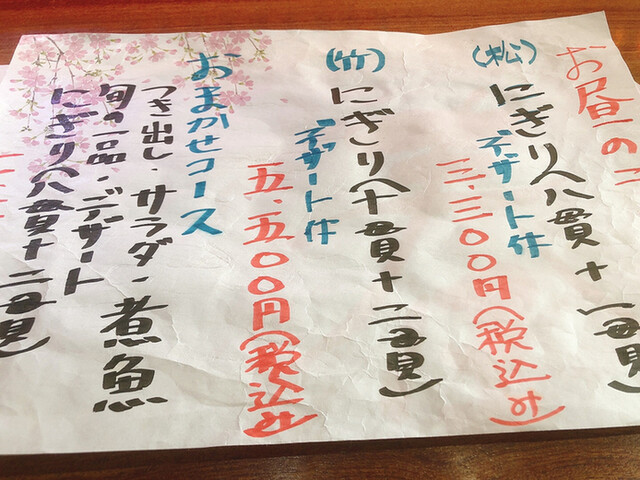 お昼のコ
(松)にぎり(八貫+一巻)
デザート付
三、三〇〇円(税込み)
(竹)にぎり(十貫+二巻)
デザート付
五、五〇〇円(税込み)
おまかせコース
つき出し・サラダ・煮魚
旬の一品・デザート
にぎり(八貫+二巻)